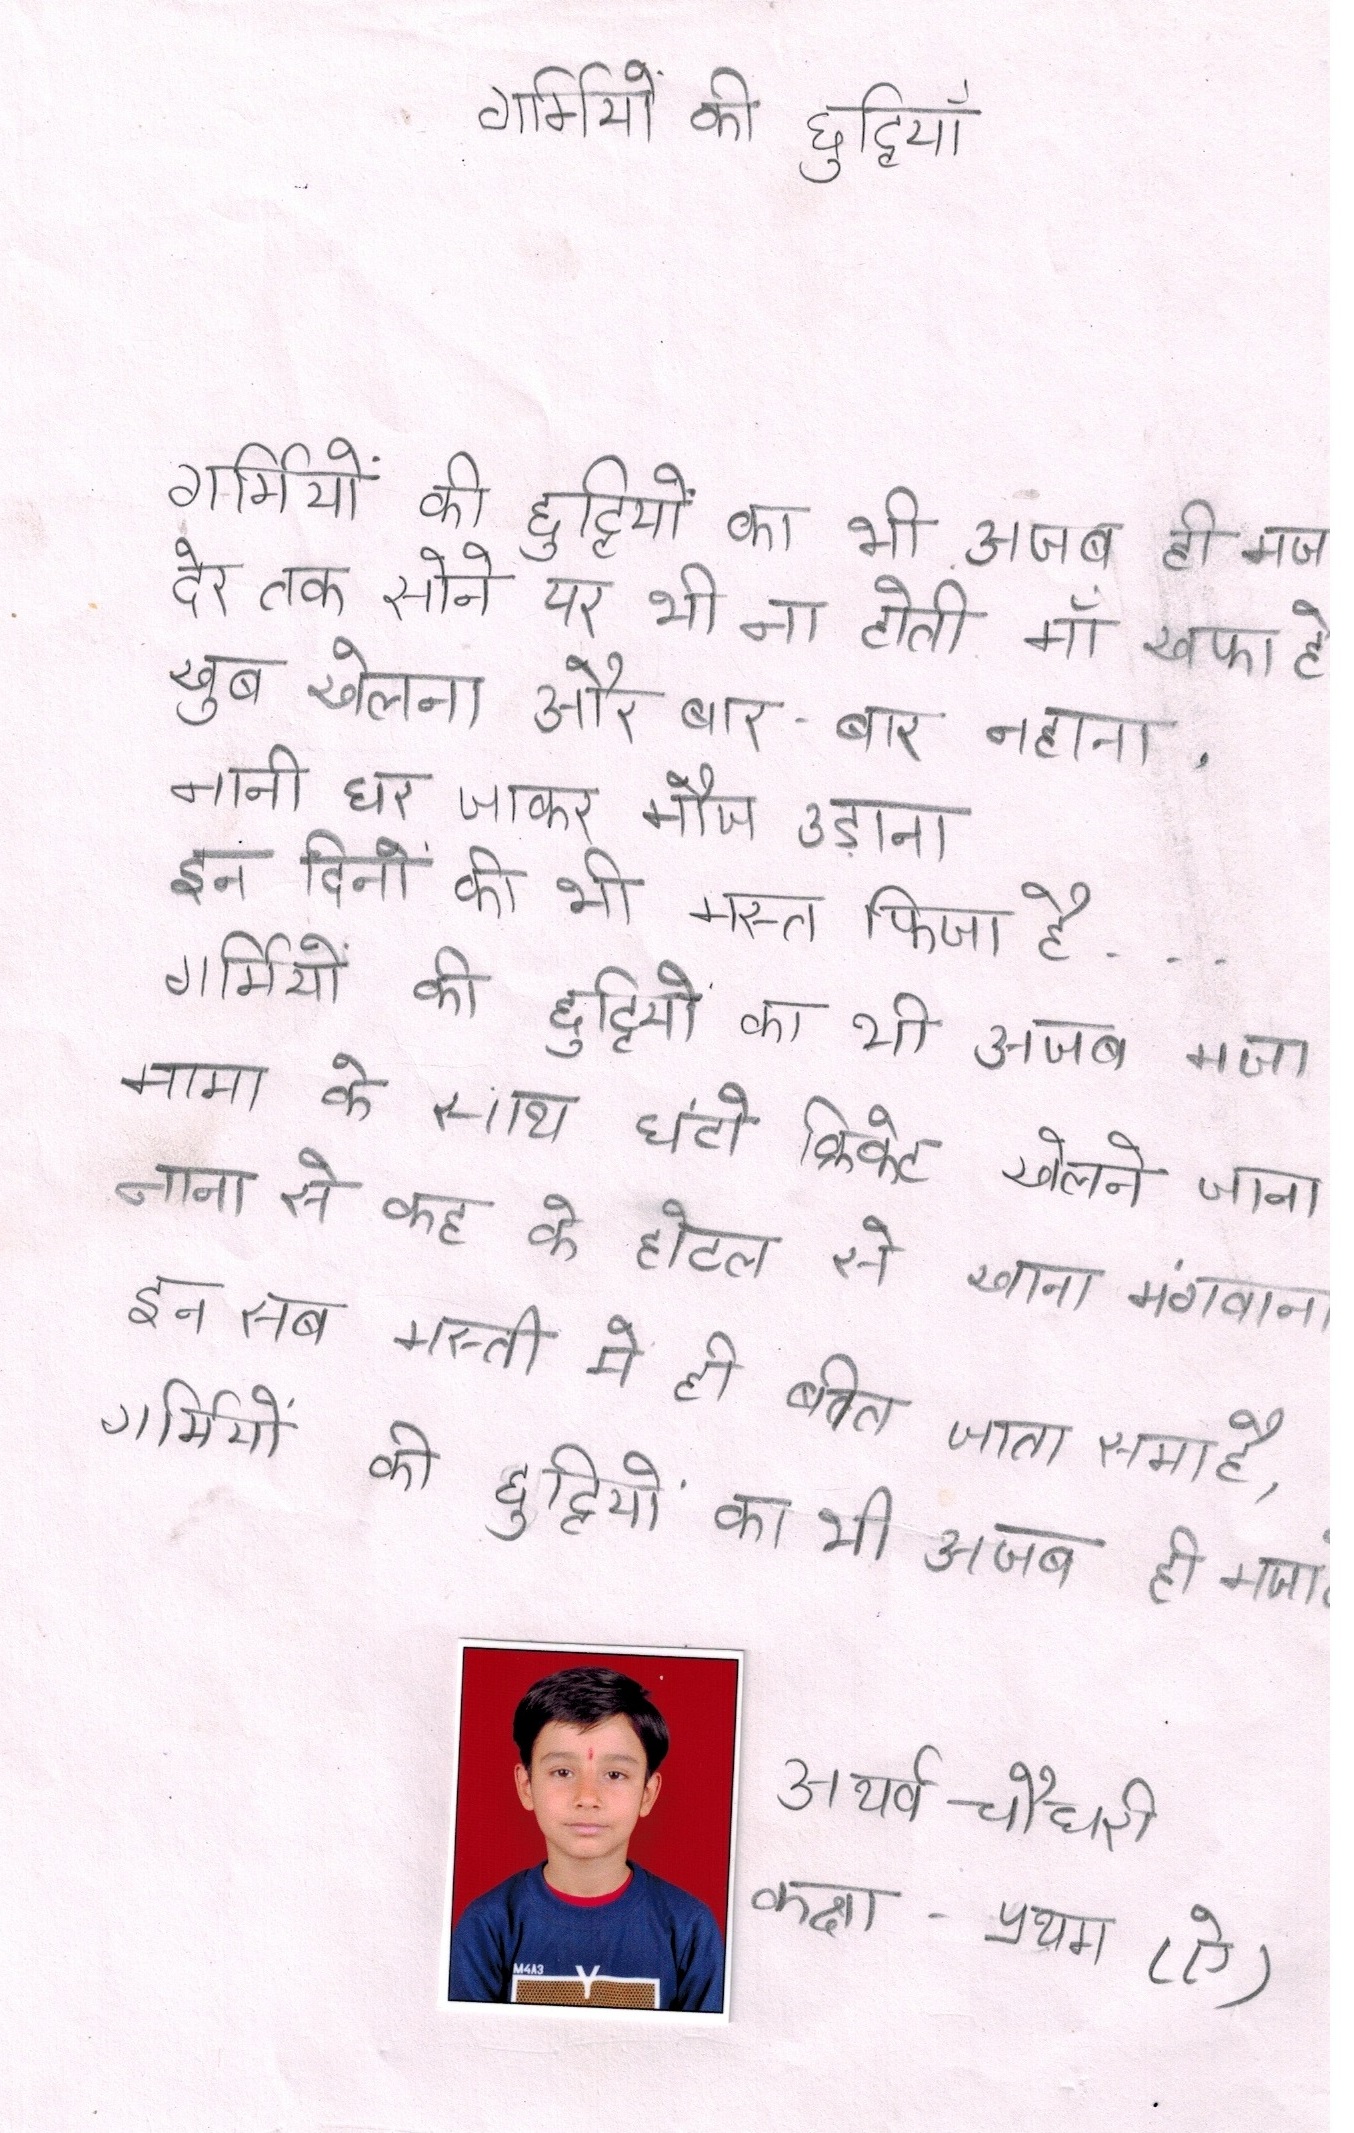 गर्मियों की छुट्टियाँ
गर्मियों की छुट्टियों का भी अजब ही मज
देर तक सोने पर भी ना होती माँ खफा है
खुब खेलना और बार - बार नहाना ,
नानी घर जाकर मौज उड़ाना
इन दिनों की भी मस्त फिजा है . . .
गर्मियों की छुट्टियों का भी अजब मजा
मामा के साथ घंटो क्रिकेट खेलने जाना
नाना से कह के होटल से खाना मंगवाना
इन सब मस्ती में ही बीत जाता समा है,
गर्मियों की छुट्टियों का भी अजब ही मजा
अथर्व चौधरी
कक्षा - प्रथम (ऐ)
M4A3